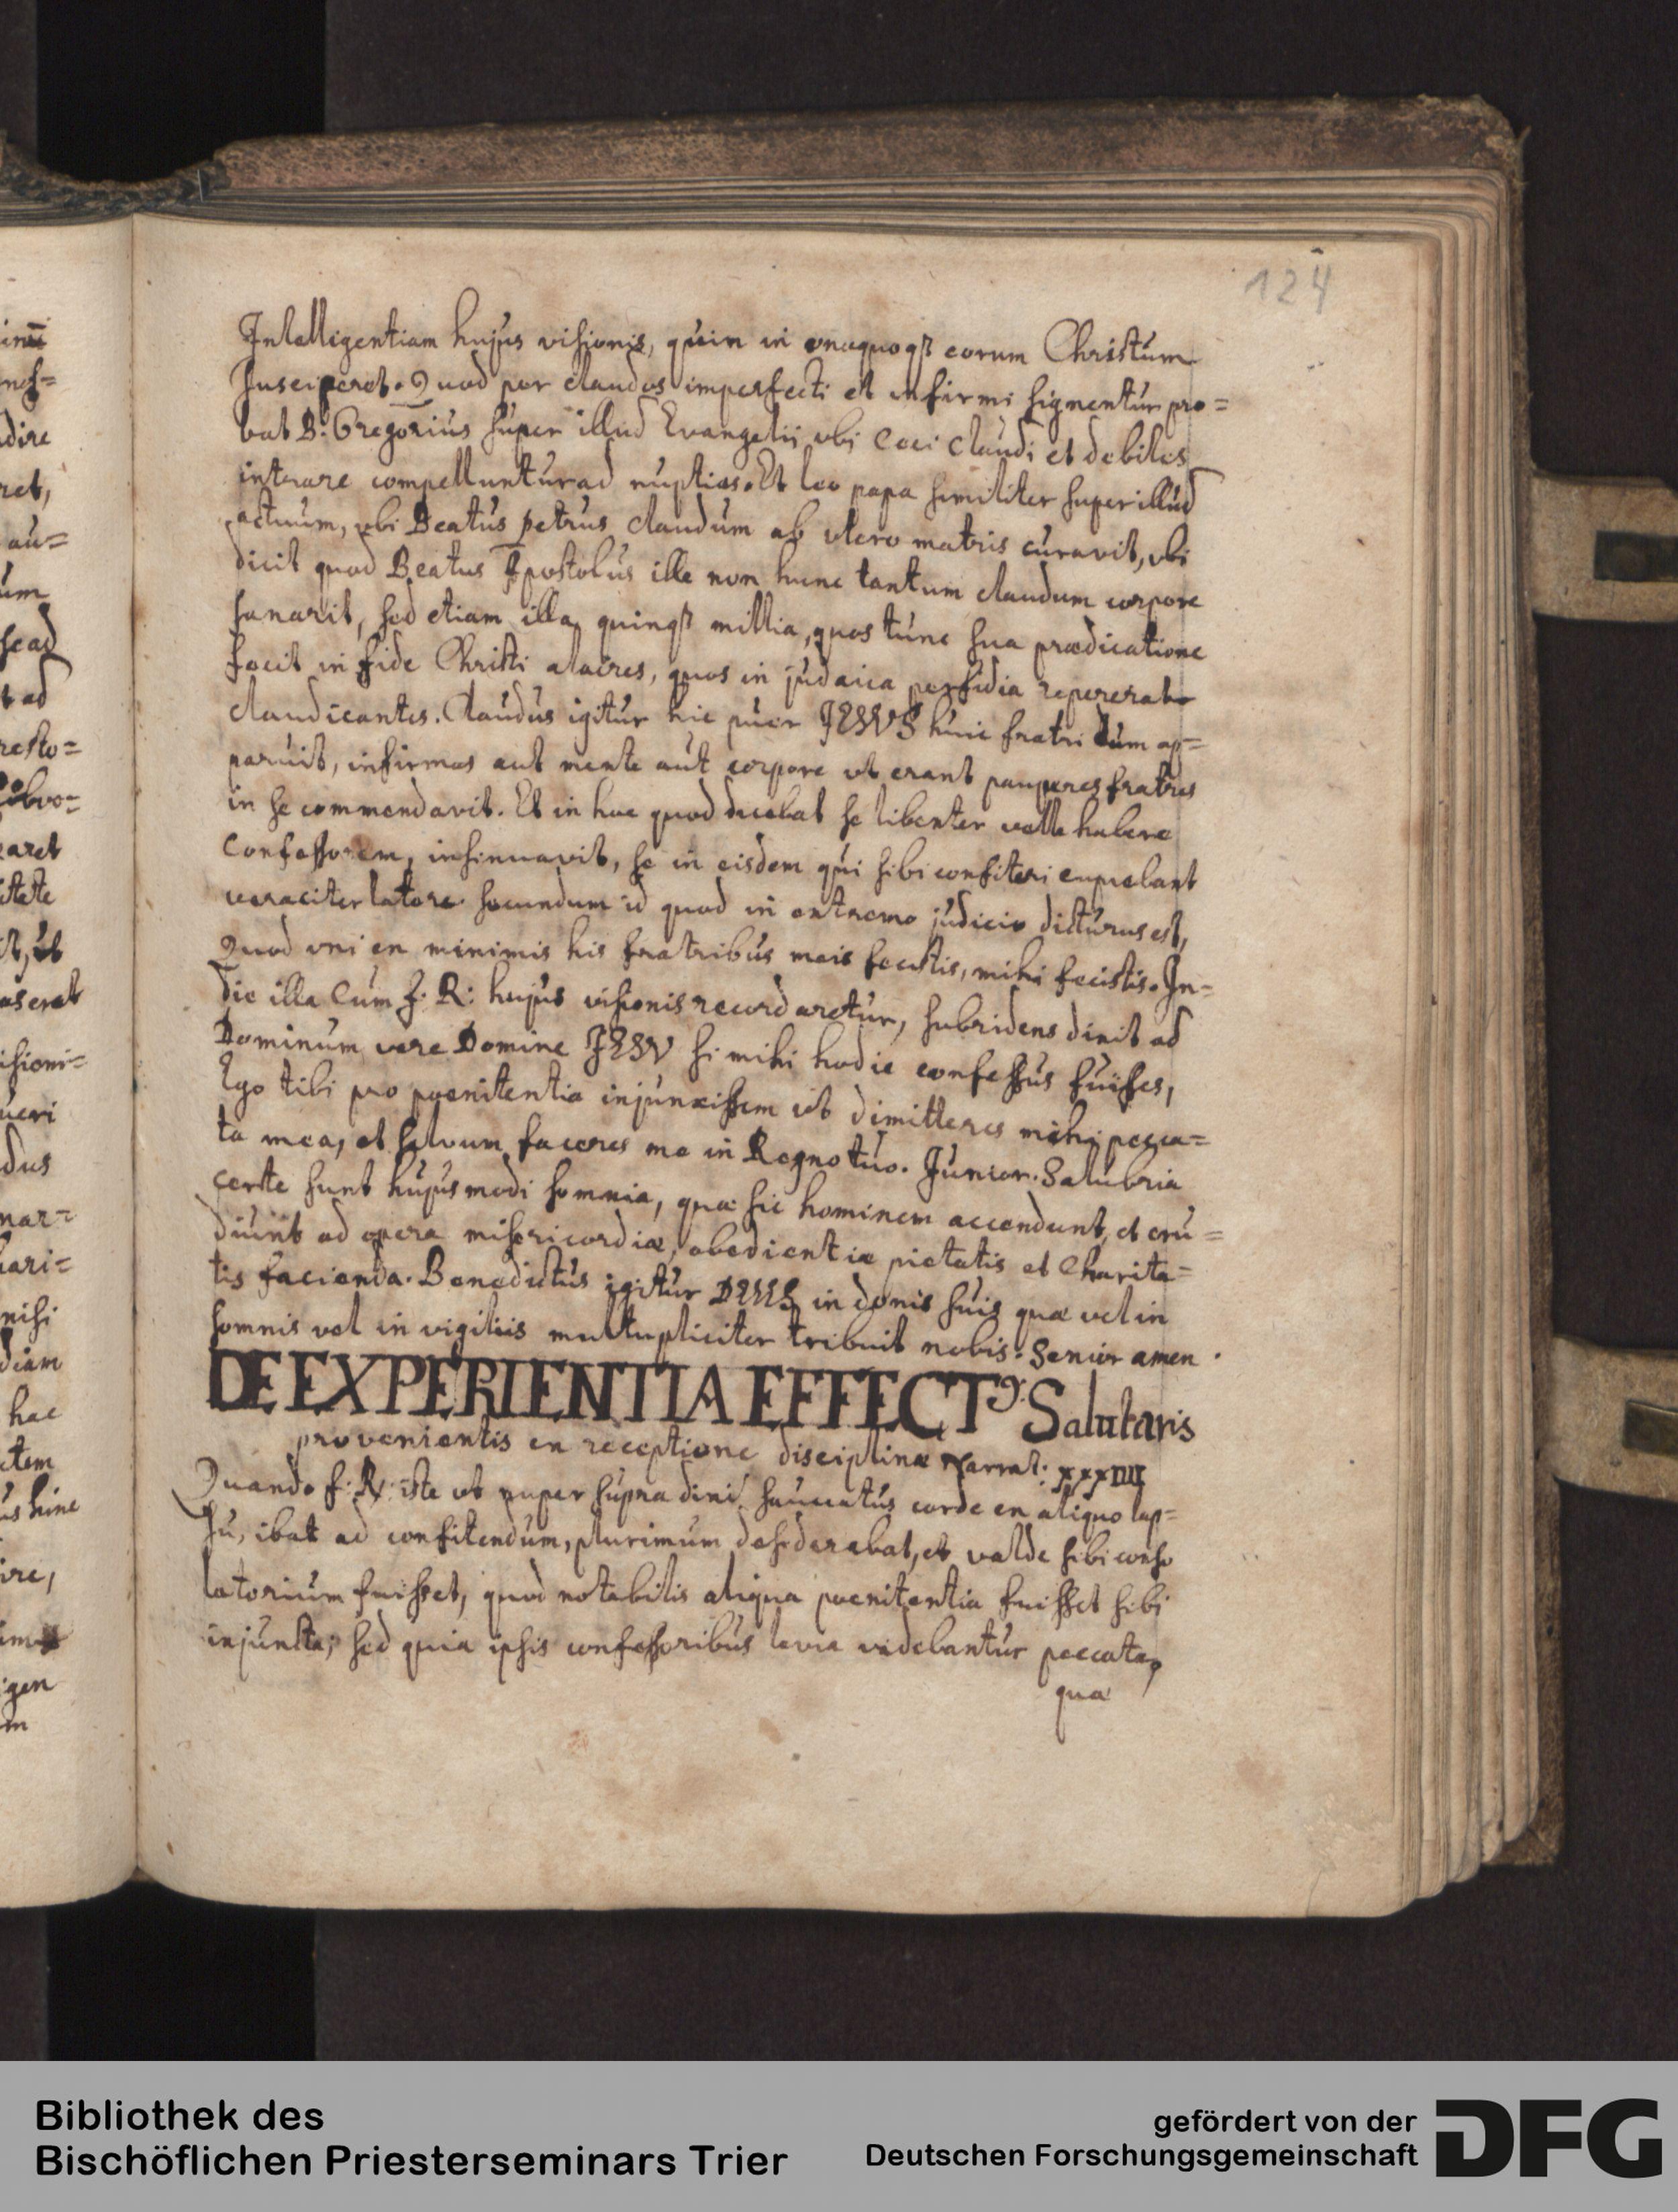 124
Intelligentiam hujus visionis, quin in unaquoqꝫ eorum Christum
susciperet. Quod per claudos imperfecti et infirmi signentur pro=
bat B: Gregorius super illud Evangelii ubi Caeci Claudi et debiles
intrare compelluntur ad nuptias. Et leo papa similiter super illud
actuum, ubi Beatus Petrus claudum ab utero matris curavit, ubi
dicit quod Beatus Apostolus ille non hunc tantum claudum corpore
sanarit, sed etiam illa quinqꝫ millia, quos tunc sua praedicatione
fecit in fide Christi alacres, quos in judaica perfidia repererat
claudicantes. Claudus igitur hic puer JESUS huic fratri dum ap=
paruit, infirmos aut mente aut corpore ut erant pauperes fratres
in se commendavit. Et in hoc quod dicebat se libenter velle habere
Confessorem, insinuavit, se in eisdem qui sibi confiteri cupiebant
veraciter latere secundum id quod in extremo judicio dicturus est,
Quod uni ex minimis his fratribus meis fecistis, mihi fecistis. In=
die illa Cum f: R: hujus visionis recordaretur, subridens dixit ad
Dominum vere Domine JESU si mihi hodie confessus fuisses,
Ego tibi pro poenitentia injunxissem ut dimitteres mihi pecca=
ta mea, et salvum faceres me in Regno tuo. Junior. Salubria
certe sunt hujusmodi somnia, quae sic hominem accendunt, et eru=
diunt ad opera misericordiae, obedientiae pietatis et Charita=
tis facienda. Benedictus igitur DEUS in donis suis quae vel in
somnis vel in vigiliis multupliciter tribuit nobis. Senior amen.
DE EXPERIENTIA EFFECTꝰ. Salutaris
provenientis ex receptione disciplinae Narrat: XXXIIII
Quando f: R: iste ut nuper supra dixi, sauciatus corde ex aliquo lap=
su, ibat ad confitendum, plurimum desiderabat, et valde sibi conso
latorium fuisset, quod notabilis aliqua poenitentia fuisset sibi
injuncta; sed quia ipsis confessoribus levia videbantur peccata,
quae
Bibliothek des
Bischöflichen Priesterseminars Trier
gefördert von der
Deutschen Forschungsgemeinschaft
DFG